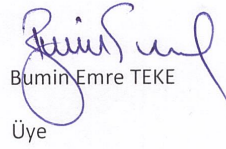 Bumin Emre TEKE
Üye